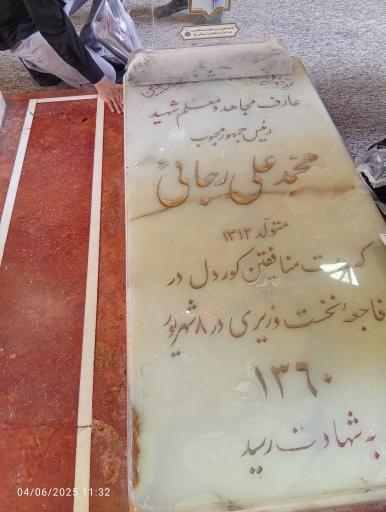 عارف مجاهد و معلم شهید
رئیس جمهور محبوب
محمد علی رجائی
متولد ۱۳۱۲
که بدست منافقین کوردل در
فاجعهٔ نخست وزیری در ۸ شهریور
۱۳۶۰
به شهادت رسید
04/06/2025 11:32